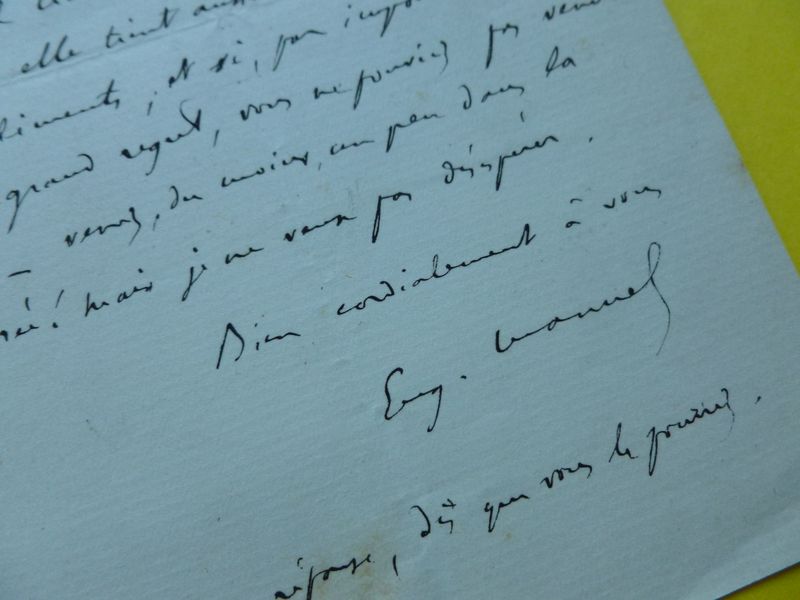 elle tient aussi
liments, et si, par impo
grand regret, vous ne pouviez pas venir
– venez, du moins, un peu dans la
rée! mais je ne veux pas désespérer.
Bien cordialement à vous
Eug. Manuel
réponse, dès que vous le pourrez.